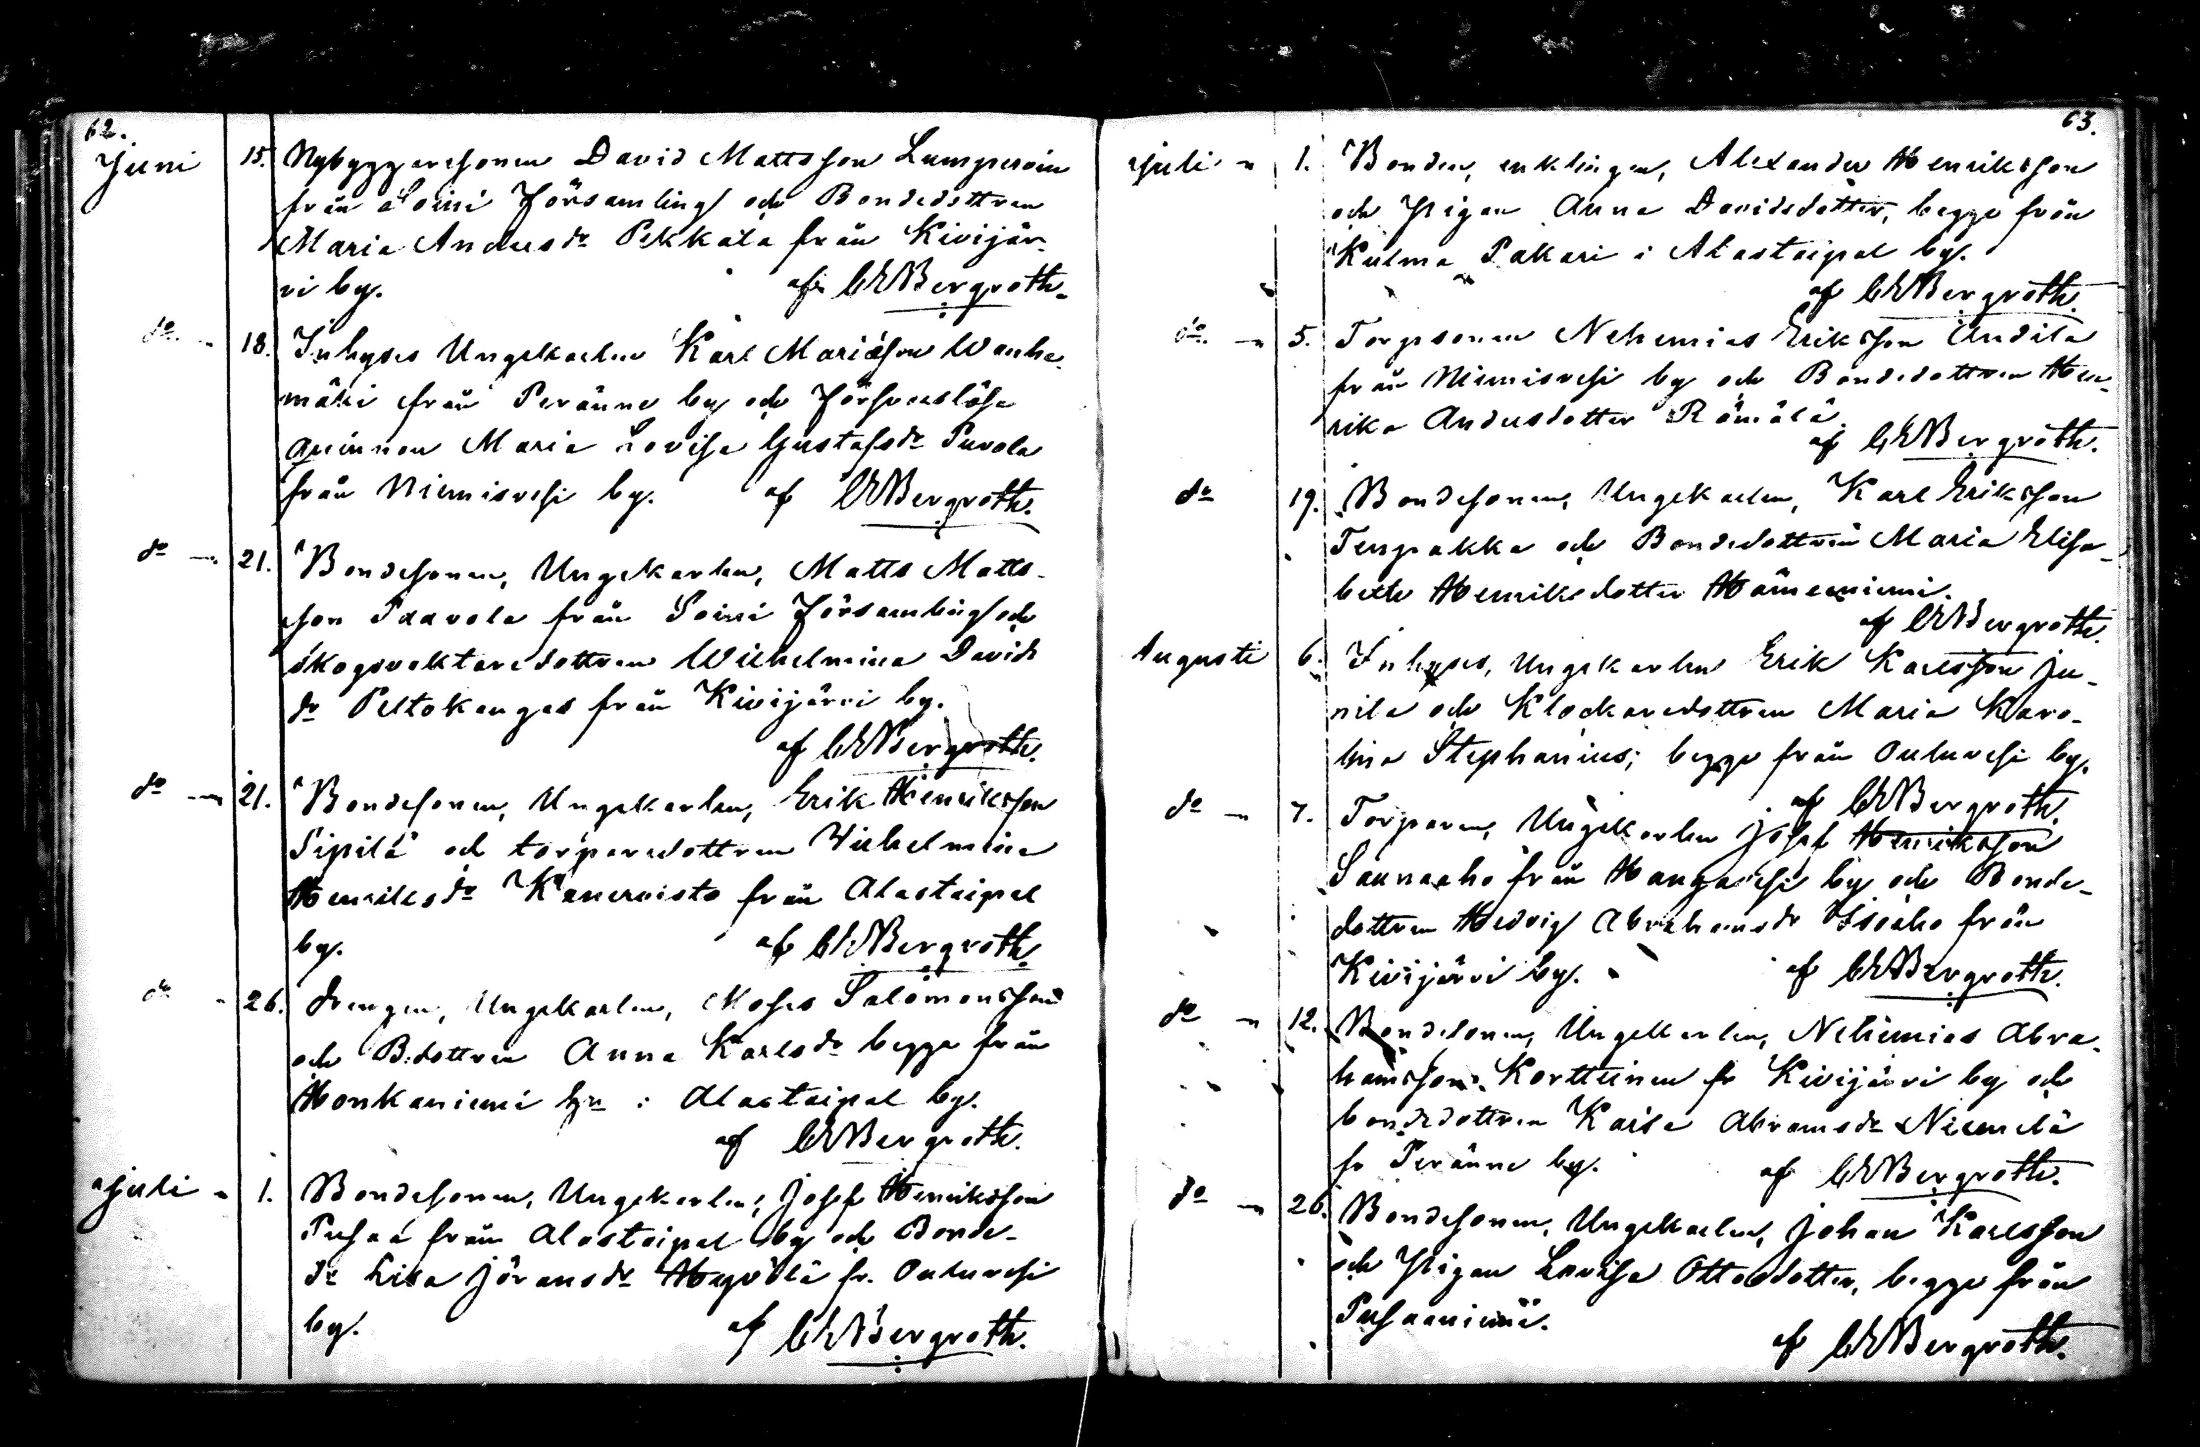 62.
Juni 15. Nybyggaresonen David Mattsson Lamperoin
från Soini Församling och Bondedottren
Maria Andersdr Pekkala från Kivijär-
vi by. af CEBergroth.
do 18. Inhyses Ungekarlen Karl Mariasson Wanha-
mäki från Peränne by och Försvarslösa
Qvinnan Maria Lovisa Gustafsdr Puvola
från Niemisvesi by. af CEBergroth.
do 21. Bondesonen, Ungekarlen, Matts Matts-
son Paavola från Soini Församling och
skogsvaktaredottren Wilhelmina Davids
dr Peltokangas från Kivijärvi by.
af CEBergroth.
do 21. Bondesonen, Ungekarlen, Erik Henriksson
Sipilä och torparedottren Vilhelmina
Henriksdr Kanervisto från Alastaipal
by. af CEBergroth.
do 26. Drengen, Ungekarlen, Moses Salomonsson
och B.dottren Anna Karlsdr begge från
Honkaniemi hn i Alastaipal by.
af CEBergroth.
Juli 1. Bondesonen, Ungekarlen, Josef Henriksson
Pusaa från Alastaipal by och Bonde-
dr Lisa Jöransdr fr. Ouluvesi
by. af CEBergroth.
63.
Juli 1. Bonden, enklingen, Alexander Henriksson
och Pigan Anna Davidsdotter, begge från
Kulma Pakari i Alastaipal by.
af CEBergroth.
do. 5. Torpsonen Nehemias Eriksson Andila
från Niemisvesi by och Bondedottren Hen-
rika Andersdotter Römälä.
af CEBergroth.
do 19. Bondesonen, Ungekarlen, Karl Eriksson
Tenpakka och Bondedottren Maria Elisa-
beth Henriksdotter Hämeeniemi.
af CEBergroth.
Augusti 6. Inhyses, Ungekarlen Erik Karlsson Ju-
nila och Klockaredottren Maria Karo-
lina Stephanius; begge från Ouluvesi by.
af CEBergroth.
do 7. Torparen, Ungekarlen Josef Henriksson
Saunaaho från Hangasvesi by och Bonde-
dottren Hedvig Abrahamsdr Isoaho från
Kivijärvi by. af CEBergroth.
do 12. Bondesonen, Ungekarlen, Nehemias Abra-
hamsson Kortteinen fr Kivijärvi by och
bondedottren Kaisa Abramsdr Niemelä
fr Peränne by. af CEBergroth.
do 26. Bondesonen, Ungekarlen, Johan Karlsson
och Pigan Lovisa Ottosdotter, begge från
Pusaaniemi.
af CEBergroth.